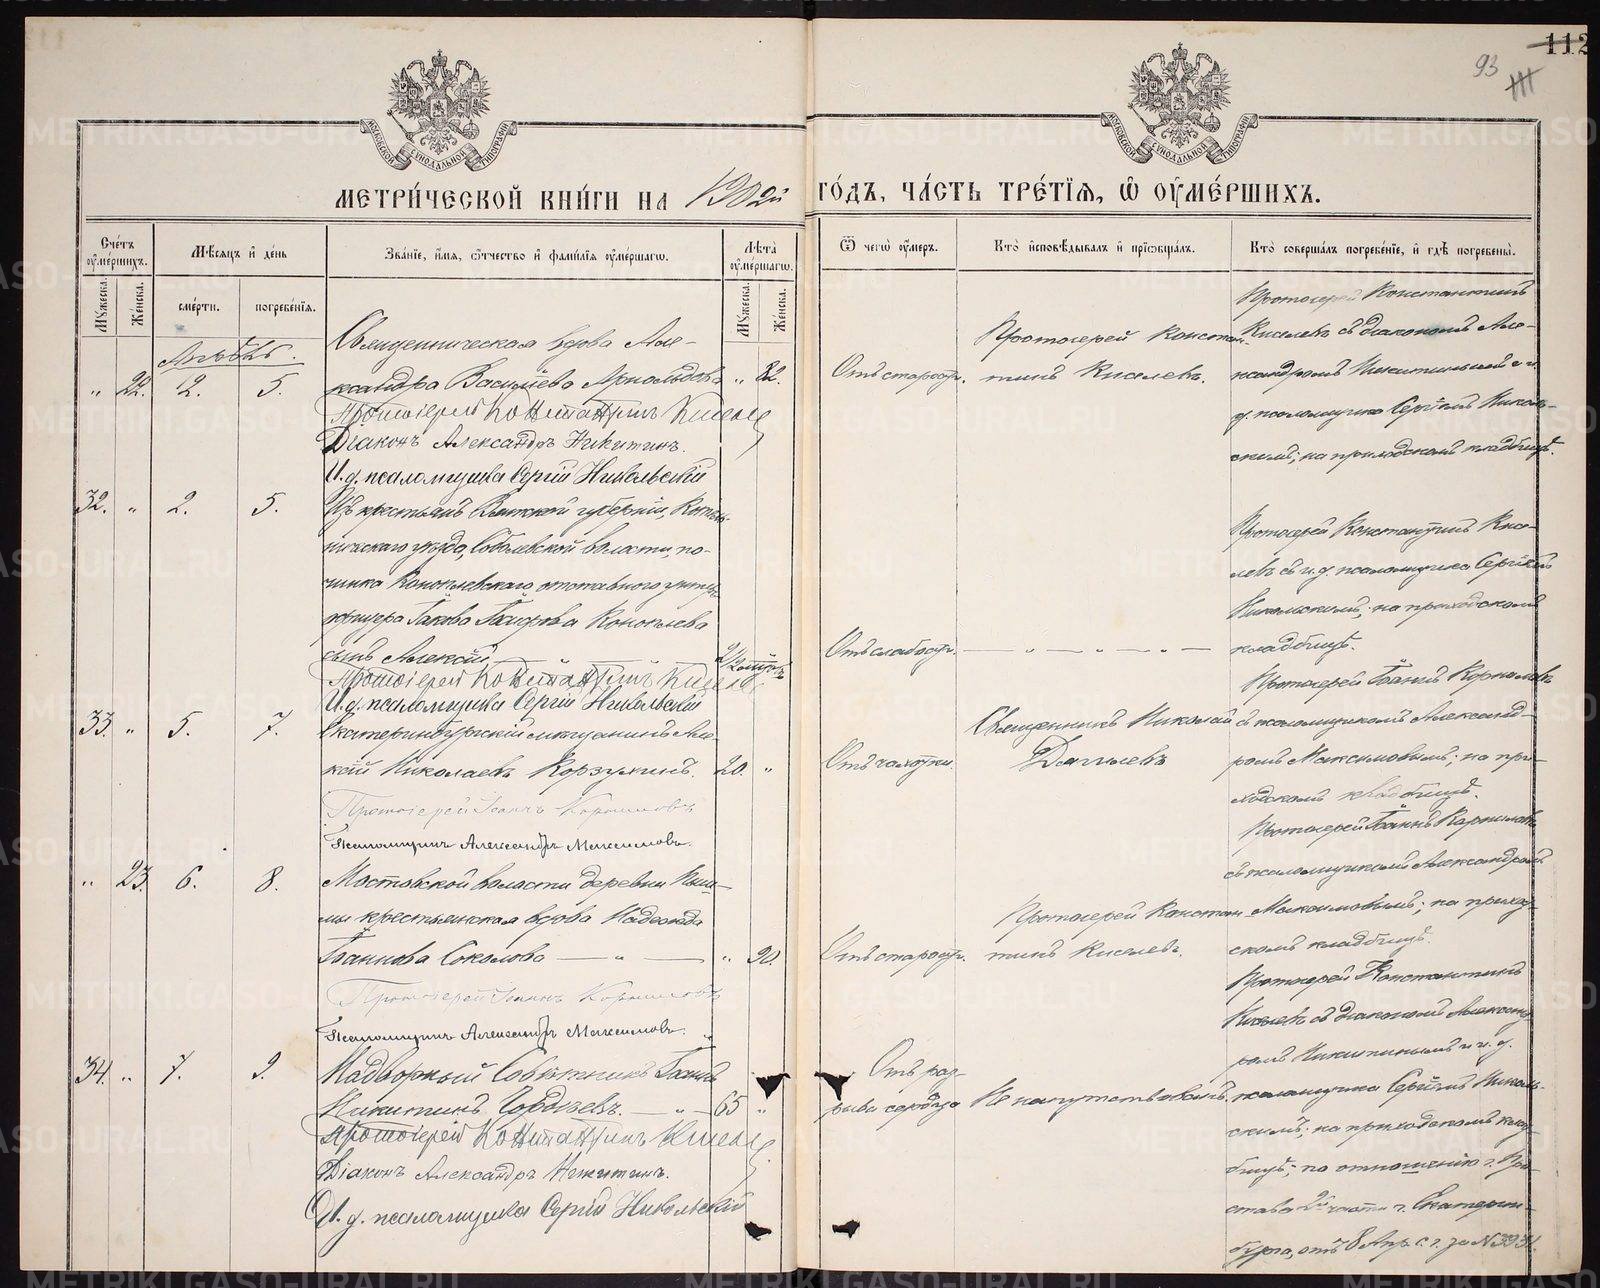 112
93
МОСКОВСКОЙ СѴНОДАЛЬНОЙ ТИПОГРАФІИ
МОСКОВСКОЙ СѴНОДАЛЬНОЙ ТИПОГРАФІИ
МЕТРИ́ЧЕСКОЙ КНИ́ГИ НА 1902й ГО́ДЪ, ЧА́СТЬ ТРЕ́ТІЯ, Ѡ ОУМЕ́РШИХЪ.
Сче́тъ оуме́ршихъ.
Мѣ́сяцъ и де́нь
Зва́нїе, и́мя, ѻ́тчество и фами́лїя оуме́ршагѡ.
Лѣ́та оуме́ршагѡ.
Ѿ чегѡ̀ оу́меръ.
Кто̀ исповѣ́дывалъ и прїѡбща́лъ.
Кто̀ соверша́лъ погребе́нїе, и гдѣ̀ погребены̀.
Мꙋ́жеска.
Же́нска.
сме́рти.
погребе́нїя.
Мꙋ́жеска.
Же́нска.
Апрѣль.
„ 22. 2. 5.
Священническая вдова Але-
ксандра Васильева „ 82.
Протоіерей Константинъ Киселевъ
Діаконъ Александръ Никитинъ.
И. д. псаломщика Сергій Никольскій
Отъ старости.
Протоіерей Констан-
тинъ Киселевъ.
Протоіерей Константинъ
Киселевъ съ діакономъ Але-
ксандромъ Никитинымъ и и.
д. псаломщика Сергіемъ Николь-
скимъ; на приходскомъ кладбищѣ.
32. „ 2. 5.
Изъ крестьянъ Вятской губерніи, Котель-
ническаго уѣзда, Соболевской волости, по-
чинка Коноплевскаго отставного унтеръ-
офицера Іакова Коноплева
сынъ Алексій
Протоіерей Константинъ Киселевъ
И. д. псаломщика Сергій Никольскій
Отъ слабости. — „ — „ — „ —
Протоіерей Константинъ Кисе-
левъ съ и. д. псаломщика Сергіемъ
Никольскимъ; на приходскомъ
кладбищѣ.
33. „ 5. 7.
Екатеринбургскій мѣщанинъ Але-
ксій Николаевъ Корзухинъ. 20. „
Протоіерей Іоаннъ Корниловъ
Псаломщикъ Александръ Максимовъ.
Отъ чахотки.
Священникъ Николай
Дягилевъ
Протоіерей Іоаннъ Корниловъ
съ псаломщикомъ Александ-
ромъ Максимовымъ; на при-
ходскомъ кладбищѣ.
„ 23. 6. 8.
Мостовской волости деревни Пыш-
мы крестьянская вдова Надежда
Іоаннова Соколова — „ — „ 90.
Протоіерей Іоаннъ Корниловъ
Псаломщикъ Александръ Максимовъ.
Отъ старости.
Протоіерей Констан-
тинъ Киселевъ.
Протоіерей Іоаннъ Корниловъ
съ псаломщикомъ Александромъ
Максимовымъ; на приход-
скомъ кладбищѣ.
34. „ 7. 9.
Надворный Совѣтникъ Іоаннъ
Никитинъ — „ — 65 „
Протоіерей Константинъ Киселевъ
Діаконъ Александръ Никитинъ.
И. д. псаломщика Сергій Никольскій
Отъ раз-
рыва сердца
Не напутствованъ.
Протоіерей Константинъ
Киселевъ съ діакономъ Александ-
ромъ Никитинымъ и и. д.
псаломщика Сергіемъ Николь-
скимъ; на приходскомъ клад-
бищѣ; по отношенію г. При-
става 2й части г. Екатерин-
бурга, отъ 8 Апр. с. г. за №